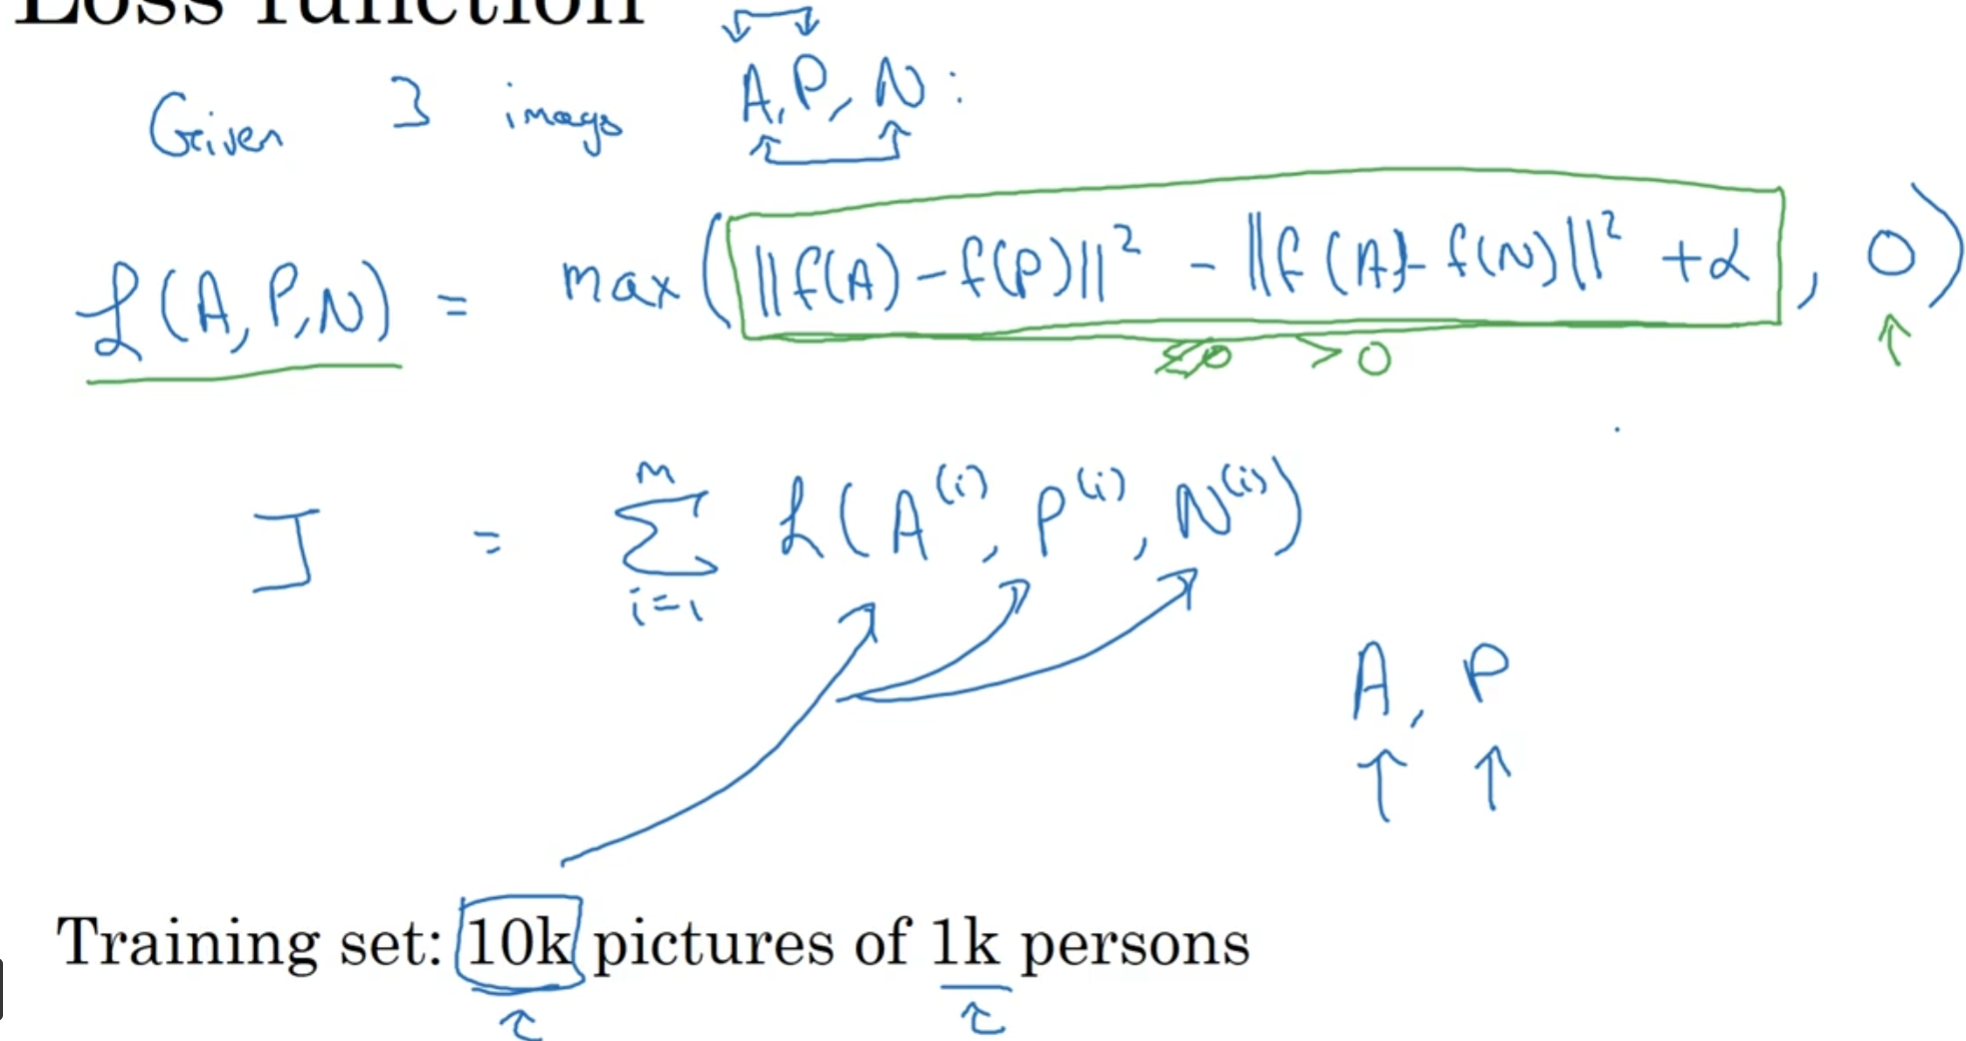 Loss function
Given 3 images A, P, N:
ℒ(A, P, N) = max(||f(A) - f(P)||² - ||f(A) - f(N)||² + α, 0)
≤0 >0
J = Σ_{i=1}^{M} ℒ(A^(i), P^(i), N^(i))
A, P
Training set: 10k pictures of 1k persons